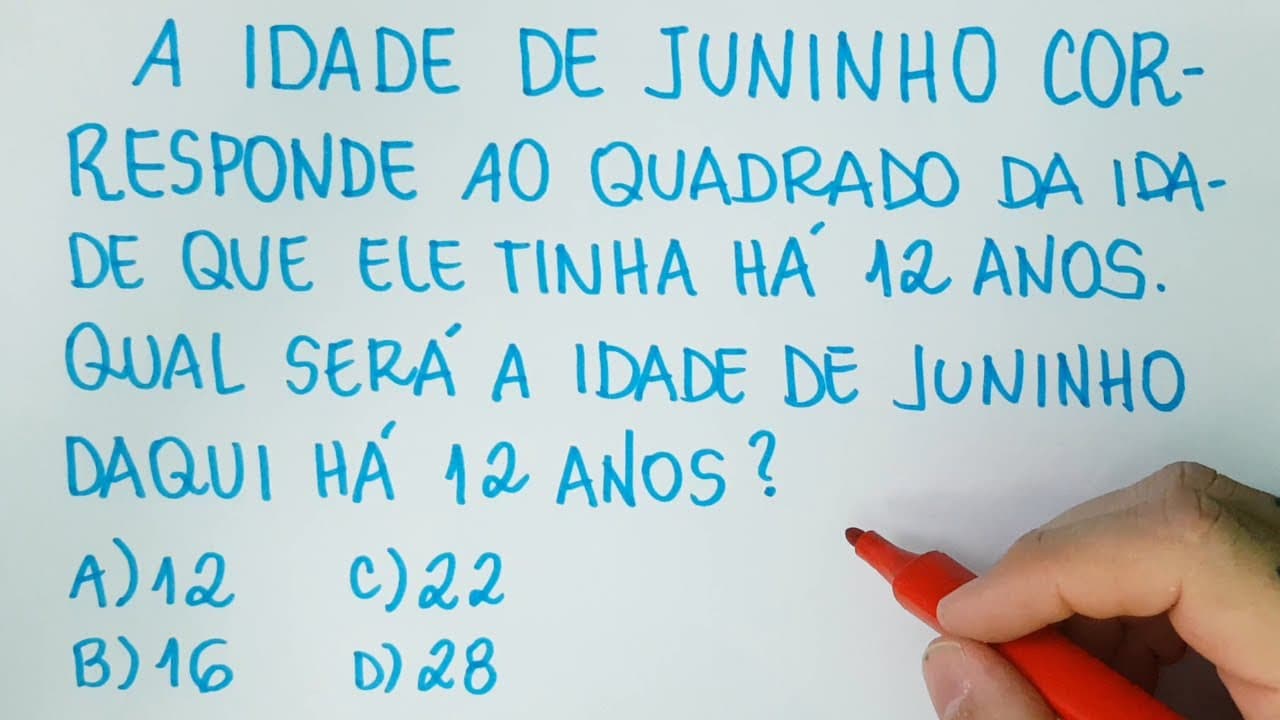 A IDADE DE JUNINHO COR-
RESPONDE AO QUADRADO DA IDA-
DE QUE ELE TINHA HÁ 12 ANOS.
QUAL SERÁ A IDADE DE JUNINHO
DAQUI HÁ 12 ANOS?
A) 12 C) 22
B) 16 D) 28